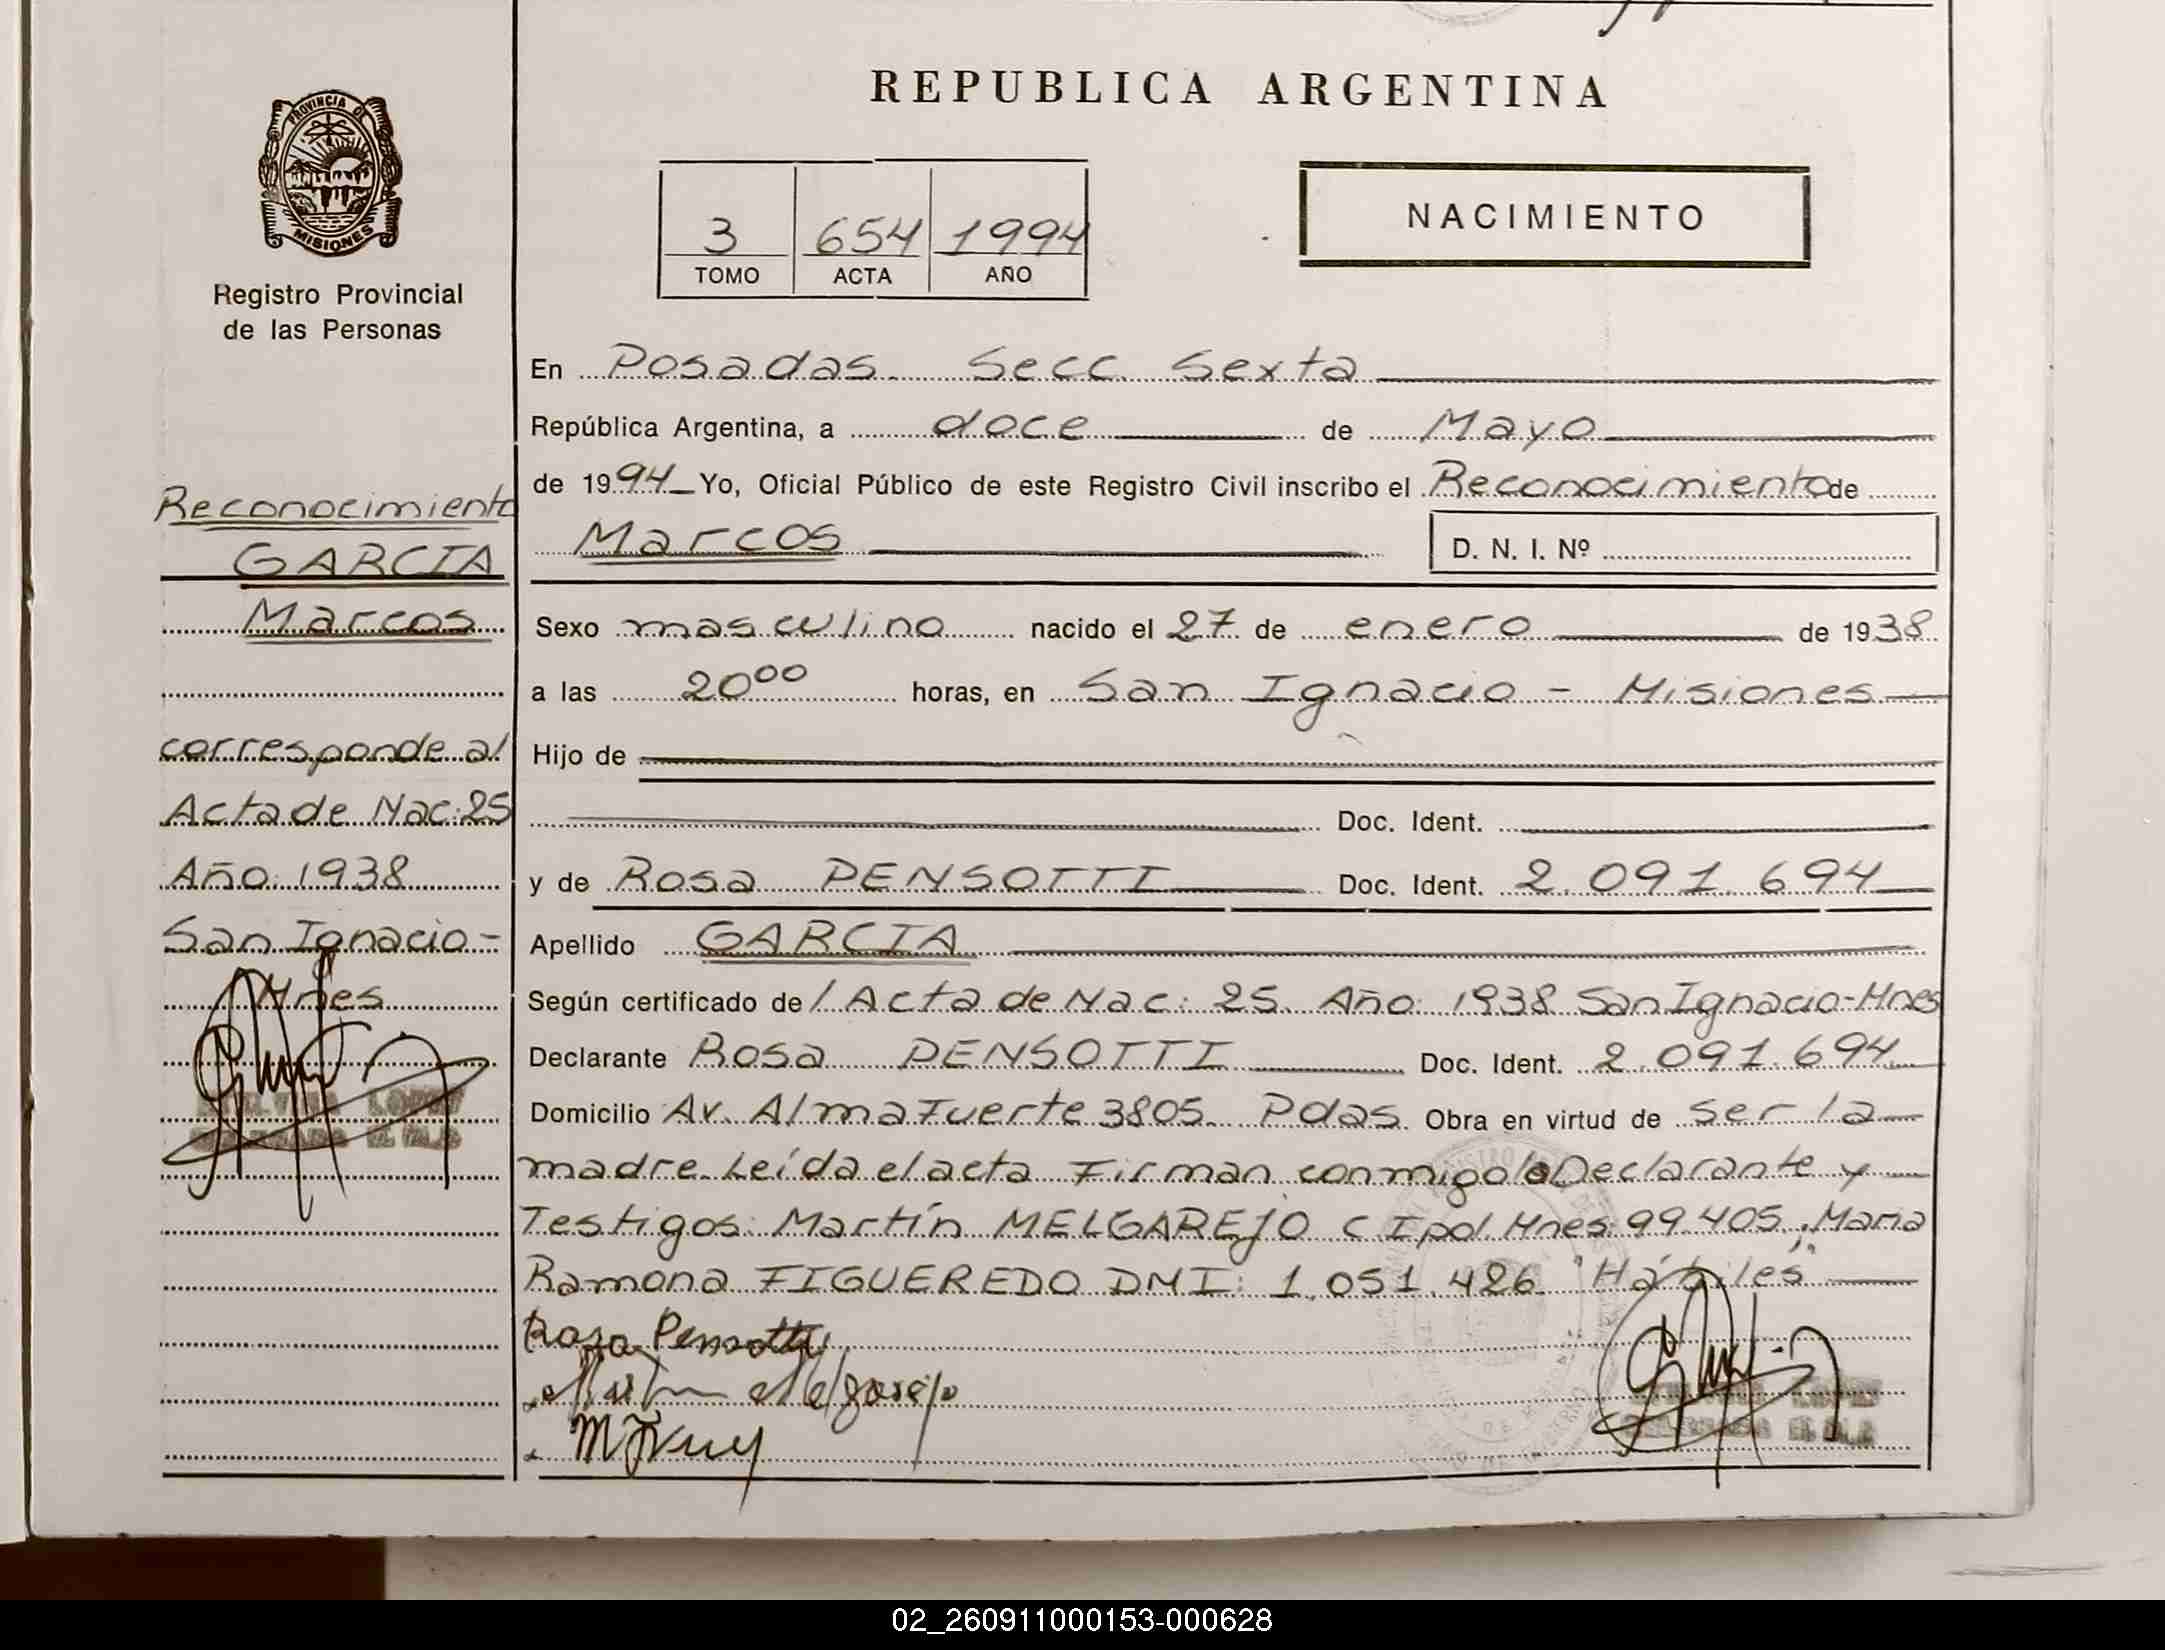 REPUBLICA ARGENTINA
PROVINCIA DE
MISIONES
Registro Provincial
de las Personas
3 654 1994
TOMO ACTA AÑO
NACIMIENTO
Reconocimiento
GARCIA
Marcos
corresponde al
Acta de Nac: 25
Año: 1938
San Ignacio-
Mnes
LOPEZ
En Posadas. Secc. Sexta
República Argentina, a doce de Mayo
de 1994 Yo, Oficial Público de este Registro Civil inscribo el Reconocimiento de
Marcos D. N. I. Nº
Sexo masculino nacido el 27 de enero de 1938
a las 20 00 horas, en San Ignacio - Misiones
Hijo de
Doc. Ident.
y de Rosa PENSOTTI Doc. Ident. 2.091.694
Apellido GARCIA
Según certificado de / Acta de Nac: 25. Año: 1938 San Ignacio-Mnes
Declarante Rosa PENSOTTI Doc. Ident. 2.091.694
Domicilio Av. Almafuerte 3805. Pdas. Obra en virtud de ser la
madre. Leída el acta Firman conmigo la Declarante y
Testigos: Martín MELGAREJO C Ipol. Mnes: 99.405, Maria
Ramona FIGUEREDO DMI: 1.051.426 "Hábiles"
Rosa Pensotti
Martin Melgarejo
LOPEZ
02_260911000153-000628